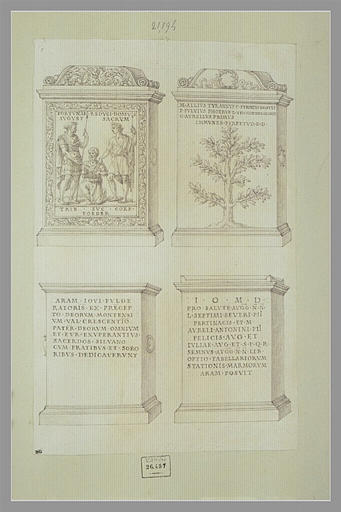 21,194
FORTVNAE REDVCI DOMVS
AVGVST SACRVM
TRIB · SVC · CORP
FOEDER
M·ALLIVS TYRANNVS
IMMVNES · PERPETVO · D · D
ARAM · IOVI · FVLGE
RATORIS · EX · PRECEP
TO · DEORVM · MONTENSI
VM · VAL · CRESCENTIO
PATER · DEORVM · OMNIVM
ET · AVR · EXVPERANTIVS
SACERDOS · SILVANI
CVM · FRATIBVS · ET · SORO
RIBVS · DEDICAVERVNT
I · O · M · D
PRO · SALVTE · AVGG · N · N
L · SEPTIMI · SEVERI · PII
PERTINACIS · ET · M
AVRELI · ANTONINI · PII
FELICIS · AVG · ET
IVLIAE · AVG · ET · S · P · Q · R
SEMNVS · AVGG · N · N · LIB
OPTIO · TABELLARIORVM
STATIONIS · MARMORVM
ARAM · POSVIT
26.487